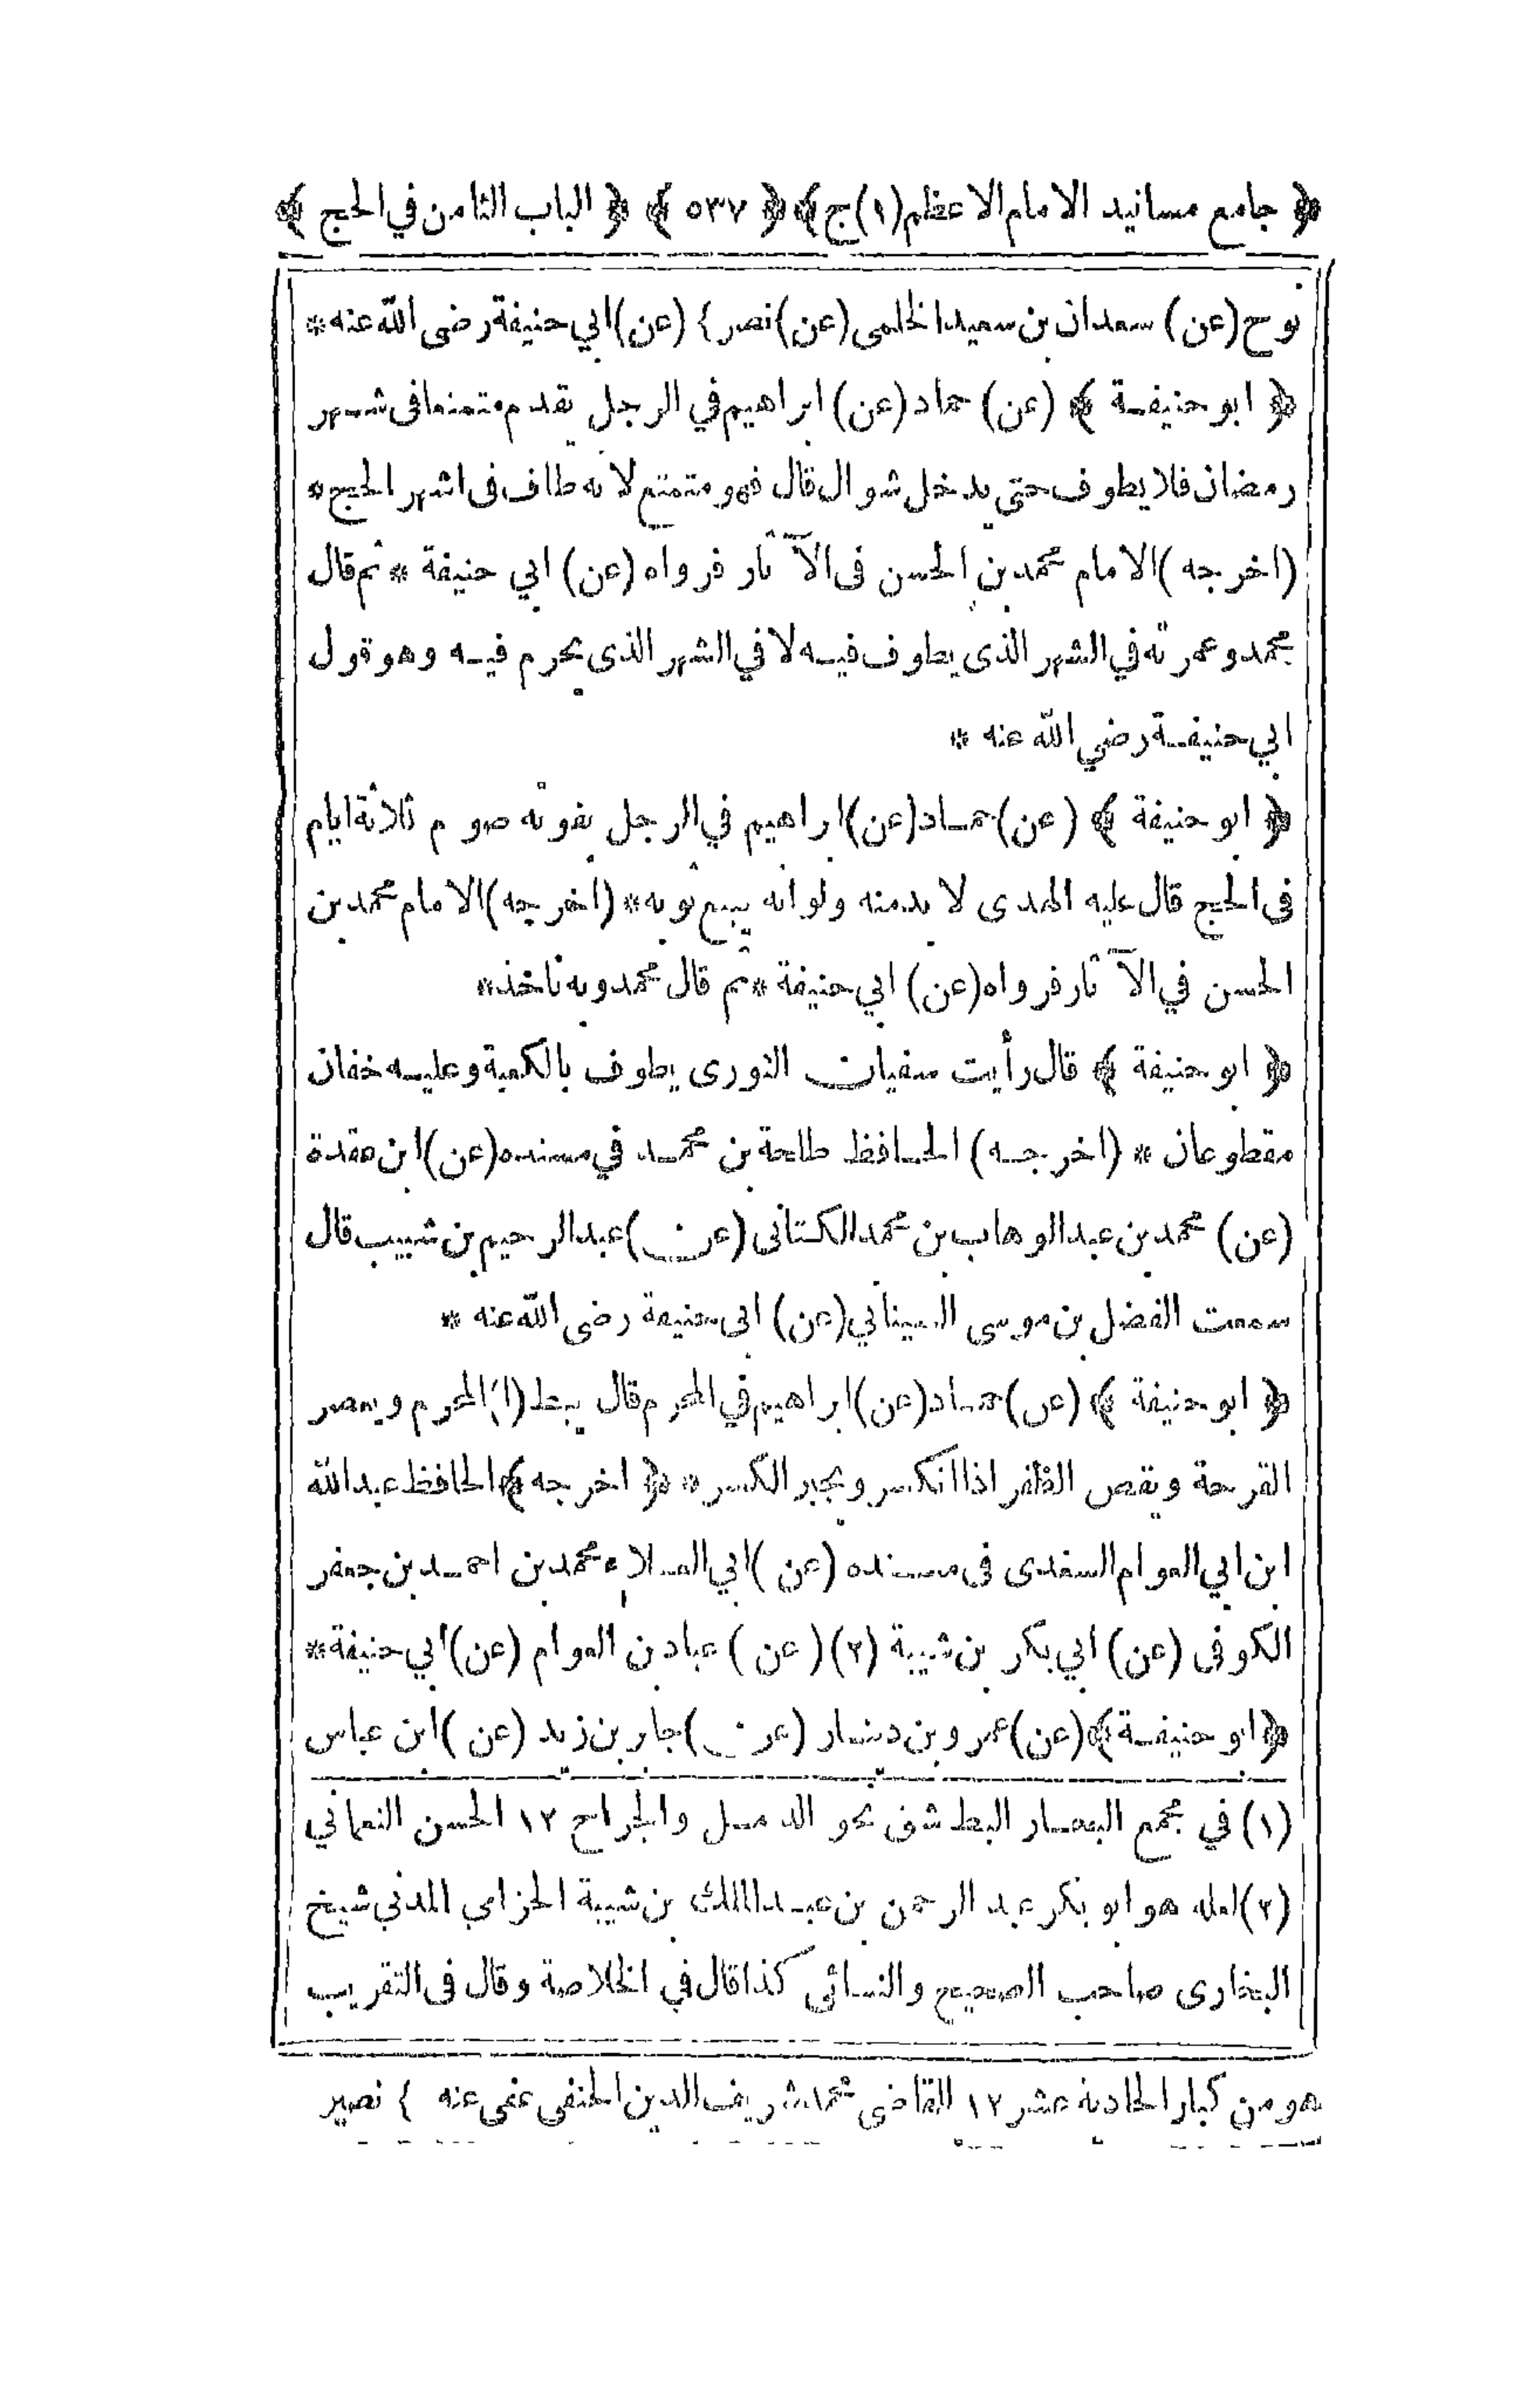 ﴿ جامع مسانيد الامام الاعظم(١)ج﴾ ﴿ ٥٣٧ ﴾ ﴿ الباب الثامن في الحج ﴾
نوح (عن) سعدان بن سعيد الخلمى (عن) نصر } (عن) ابي حنيفة رضى الله عنه *
﴿ ابو حنيفة ﴾ (عن) حماد (عن) ابراهيم في الرجل يقدم متمتعا فى شهر
رمضان فلا يطوف حتى يدخل شوال قال فهو متمتع لانه طاف فى اشهر الحج *
(اخرجه) الامام محمد بن الحسن فى الآثار فرواه (عن) ابي حنيفة * ثم قال
محمد وعمرته في الشهر الذى يطوف فيه لا في الشهر الذى يحرم فيه وهو قول
ابي حنيفة رضي الله عنه *
﴿ ابو حنيفة ﴾ (عن) حماد (عن) ابراهيم في الرجل يفوته صوم ثلاثة ايام
فى الحج قال عليه الهدى لا بد منه ولو انه يبيع ثوبه * (اخرجه) الامام محمد بن
الحسن في الآثار فرواه (عن) ابي حنيفة * ثم قال محمد وبه ناخذ *
﴿ ابو حنيفة ﴾ قال رأيت سفيان الثورى يطوف بالكعبة وعليه خفان
مقطوعان * (اخرجه) الحافظ طلحة بن محمد في مسنده (عن) ابن عقدة
(عن) محمد بن عبد الوهاب بن محمد الكتانى (عن) عبد الرحيم بن شبيب قال
سمعت الفضل بن موسى السيناني (عن) ابى حنيفة رضى الله عنه *
﴿ ابو حنيفة ﴾ (عن) حماد (عن) ابراهيم في المحرم قال يبط (١) المحرم ويعصر
القرحة ويقص الظفر اذا انكسر ويجبر الكسر * ﴿ اخرجه ﴾ الحافظ عبد الله
ابن ابي العوام السغدى فى مسنده (عن) ابي العلاء محمد بن احمد بن جعفر
الكوفى (عن) ابي بكر بن شيبة (٢) (عن) عباد بن العوام (عن) ابي حنيفة *
﴿ ابو حنيفة ﴾ (عن) عمرو بن دينار (عن) جابر بن زيد (عن) ابن عباس
(١) في مجمع البحار البط شق نحو الدمل والجراح ١٢ الحسن النعماني
(٢) لعله هو ابو بكر عبد الرحمن بن عبد الملك بن شيبة الحزامي المدني شيخ
البخارى صاحب الصحيح والنسائى كذا قال في الخلاصة وقال فى التقريب
هو من كبار الحادية عشر ١٢ القاضى محمد شريف الدين الحنفى عفى عنه } نصير